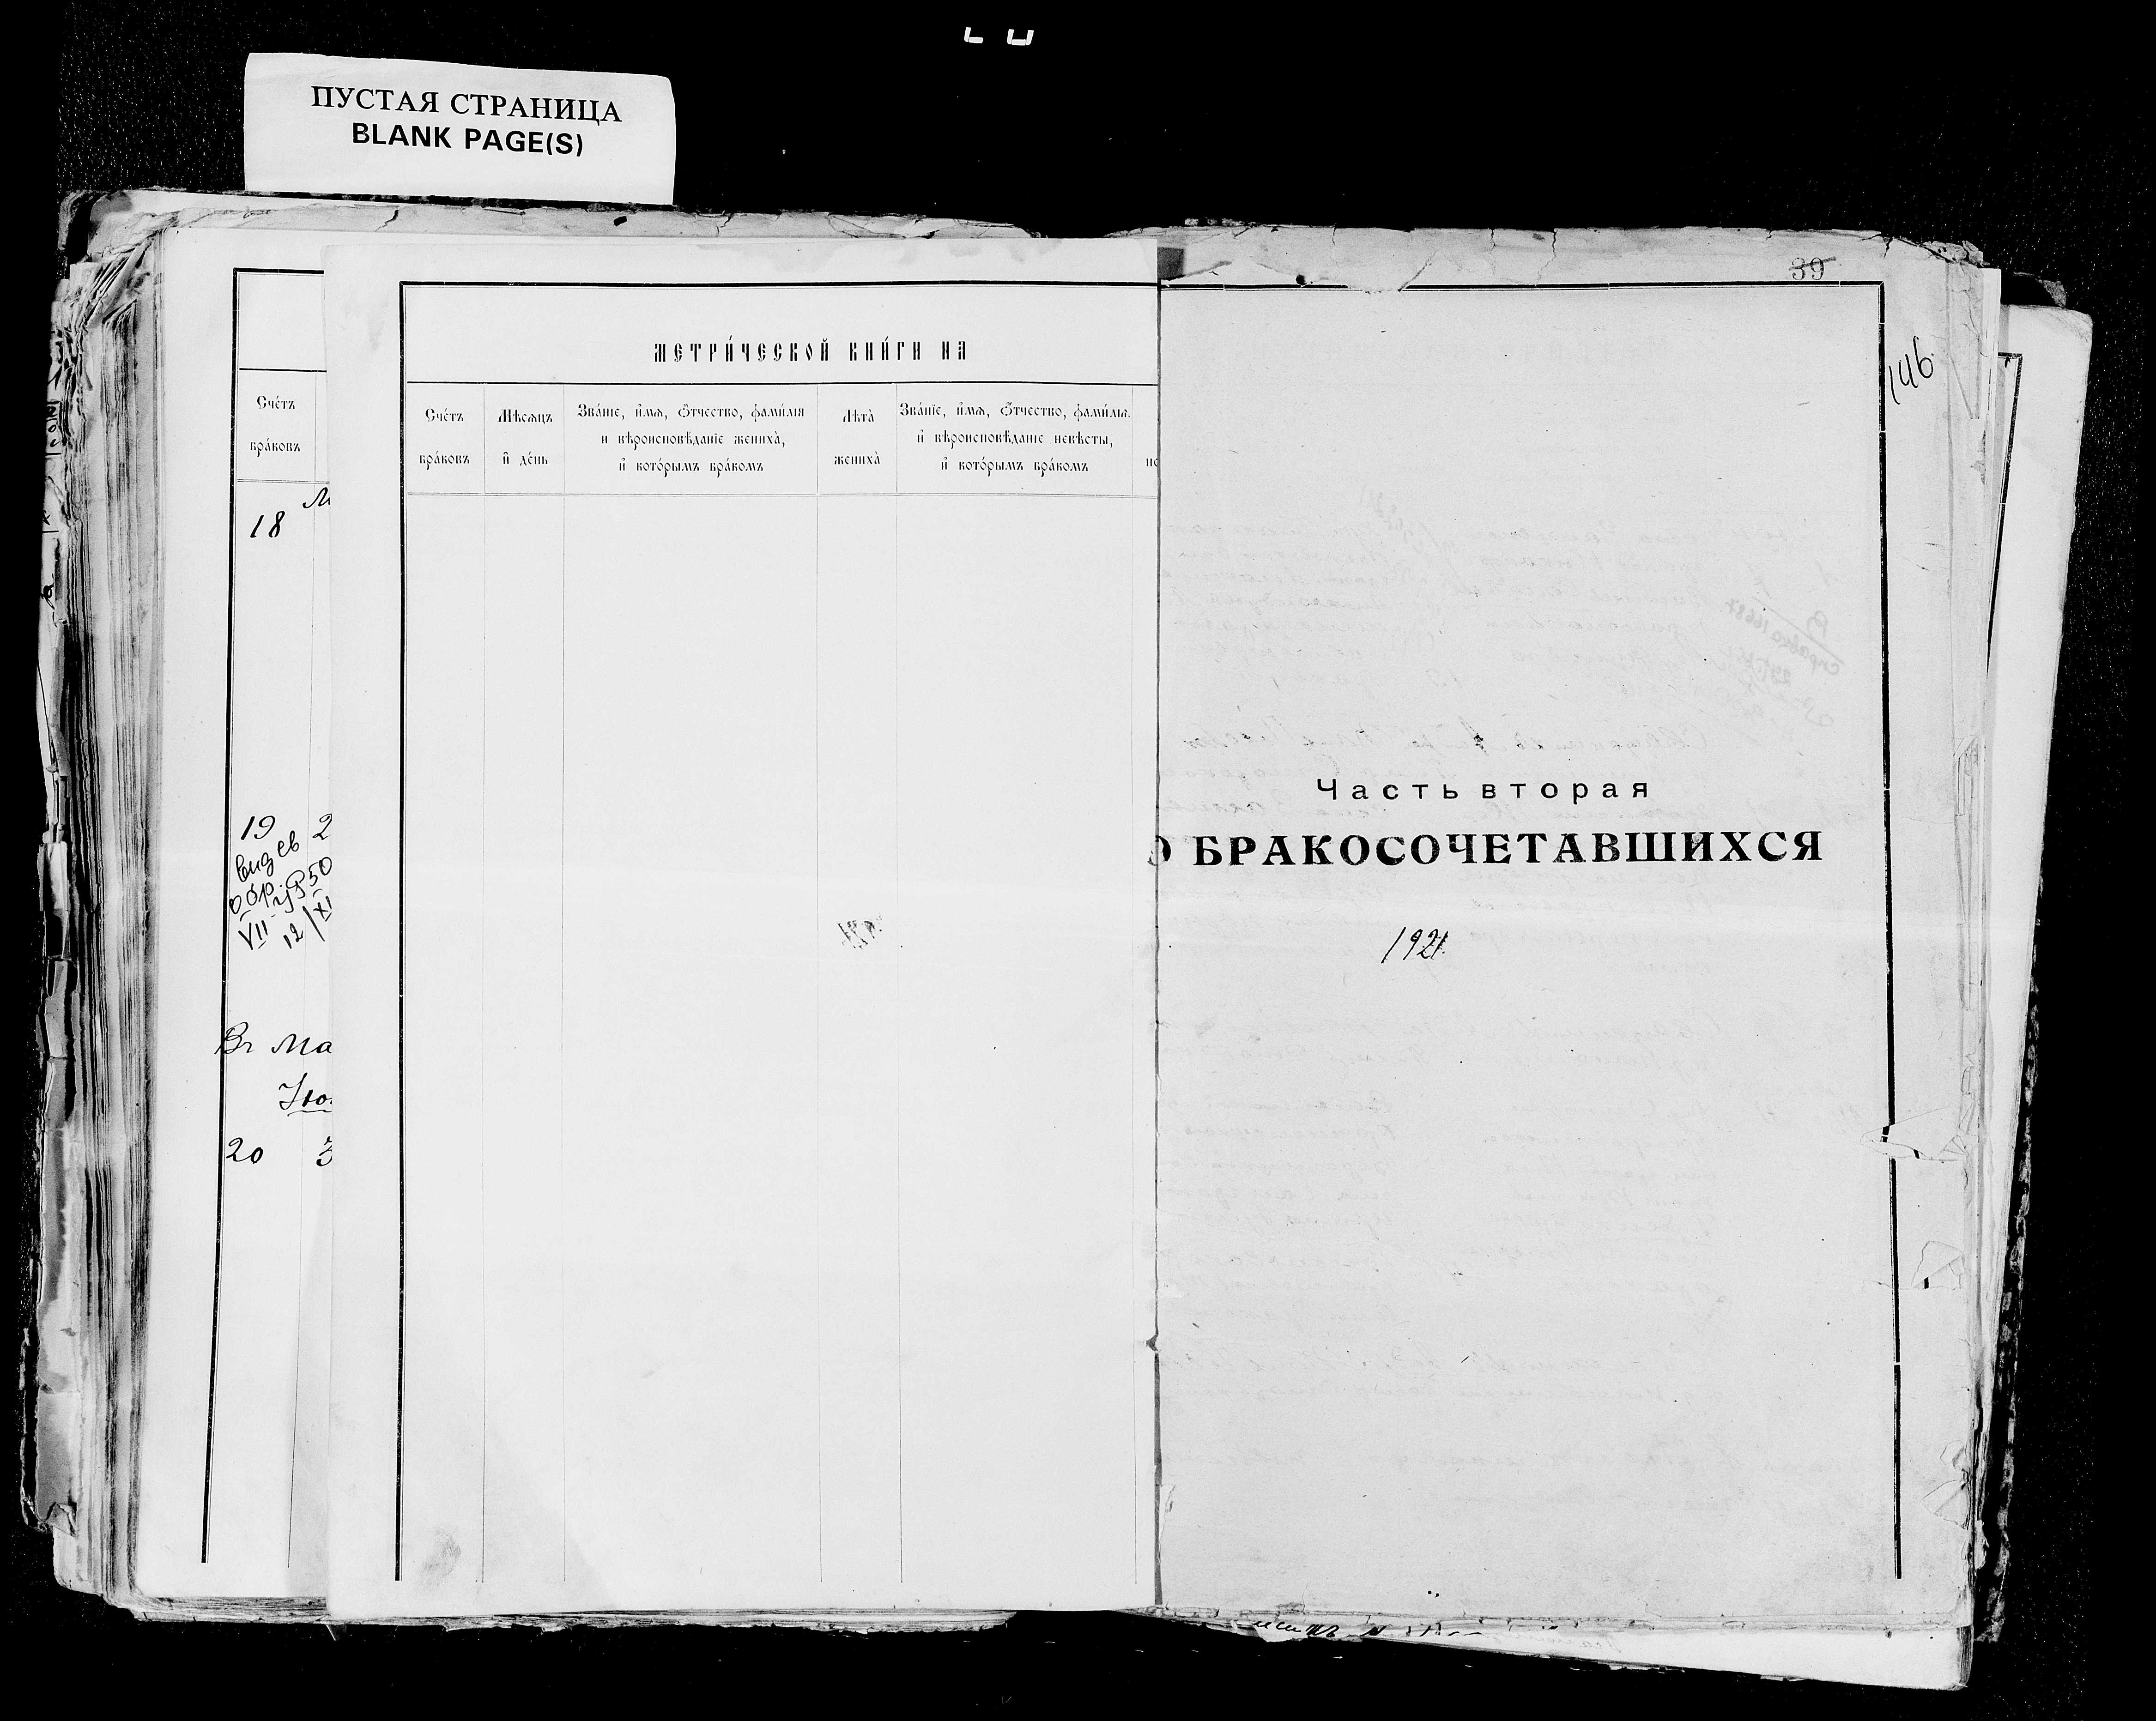 ПУСТАЯ СТРАНИЦА
BLANK PAGE(S)
Сче́тъ
бра́ковъ
18
19 2
вид св
VII 12/XI
Въ Ма
20 3
МЕТРИ́ЧЕСКОЙ КНИ́ГИ НА
Сче́тъ бра́ковъ
Мѣсяцъ и де́нь
Зва́нїе, и́мѧ, ѻ҆́тчество, фами́лїѧ
и вѣроисповѣданїе жениха̀,
и҆ кото́рымъ бра́комъ
Лѣта̀ жениха̀
Зва́нїе, и́мѧ, ѻ҆́тчество, фами́лїѧ
и҆ вѣроисповѣданїе невѣсты,
и҆ кото́рымъ бра́комъ
39
146
Часть вторая
О БРАКОСОЧЕТАВШИХСЯ
1921.